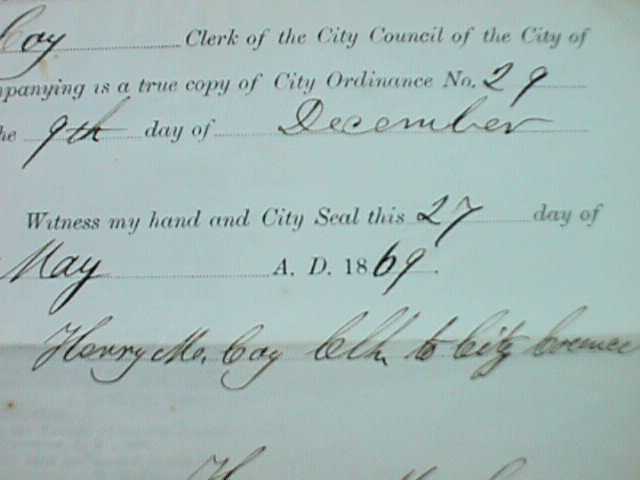 Coy Clerk of the City Council of the City of
mpanying is a true copy of City Ordinance No. 29
he 9th day of December
Witness my hand and City Seal this 27 day of
May A. D. 1869.
Henry Mc. Coy Clk to City